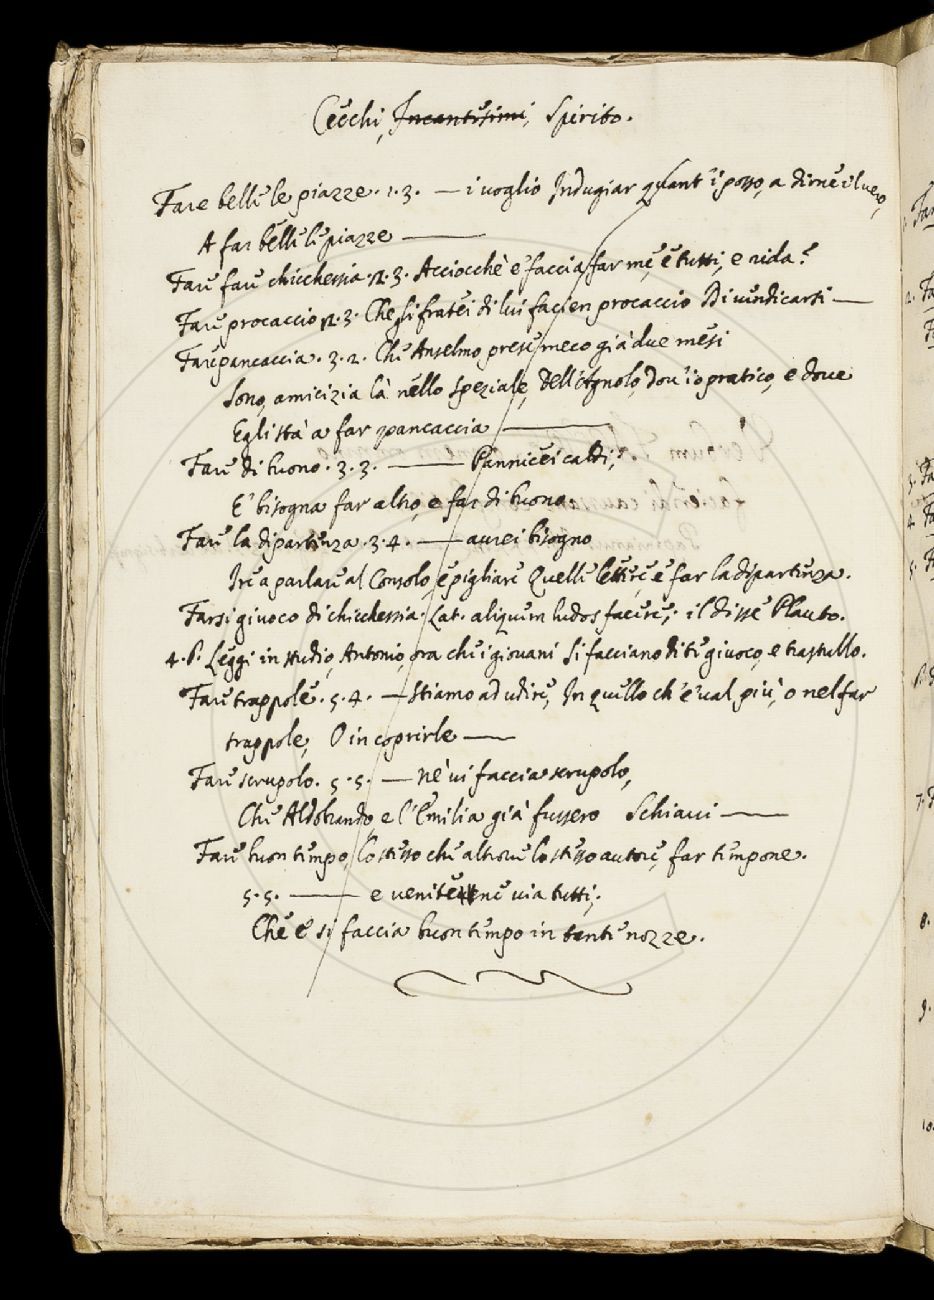 Cecchi, Incantesimi, Spirito.
Fare belle le piazze. 1. 3. — i voglio Indugiar quant' i posso, a dirne il vero,
A far belle le piazze —
Fare fare chicchessia. 2. 3. Acciocchè e' faccia far me, e tutti, e rida?
Fare procaccio. 2. 3. Che gli fratei di lui facien procaccio Di vendicarsi —
Fare pancaccia. 3. 2. Che Anselmo prese meco già due mesi
Sono, amicizia là nello speziale, Dell'Agnolo, dov' io pratico, e dove
Egli stà a far pancaccia —
Fare di buono. 3. 3. — Pannicei caldi;
E' bisogna far altro, e far di buono.
Fare la dipartenza. 3. 4. — aurei bisogno
Ire a parlare al Consolo e pigliare Quelle lettere, e far la dipartenza.
Farsi giuoco di chicchessia. Lat. aliquem ludos facere; il disse Plauto.
4. 6. Leggi in studio, Antonio, ora che i giovani Si facciano di te giuoco, e trastullo.
Fare trappole. 5. 4. — Stiamo ad udire, In quello ch' e' val più, o nel far
trappole, O in coprirle —
Fare scrupolo. 5. 5. — Nè vi faccia scrupolo,
Che Aldobrando, e l'Emilia già fussero Schiavi —
Fare buon tempo, lo stesso che altrove lo stesso autore, far tempone.
5. 5. — e venitene via tutti;
Che e' si faccia buon tempo in tante nozze.